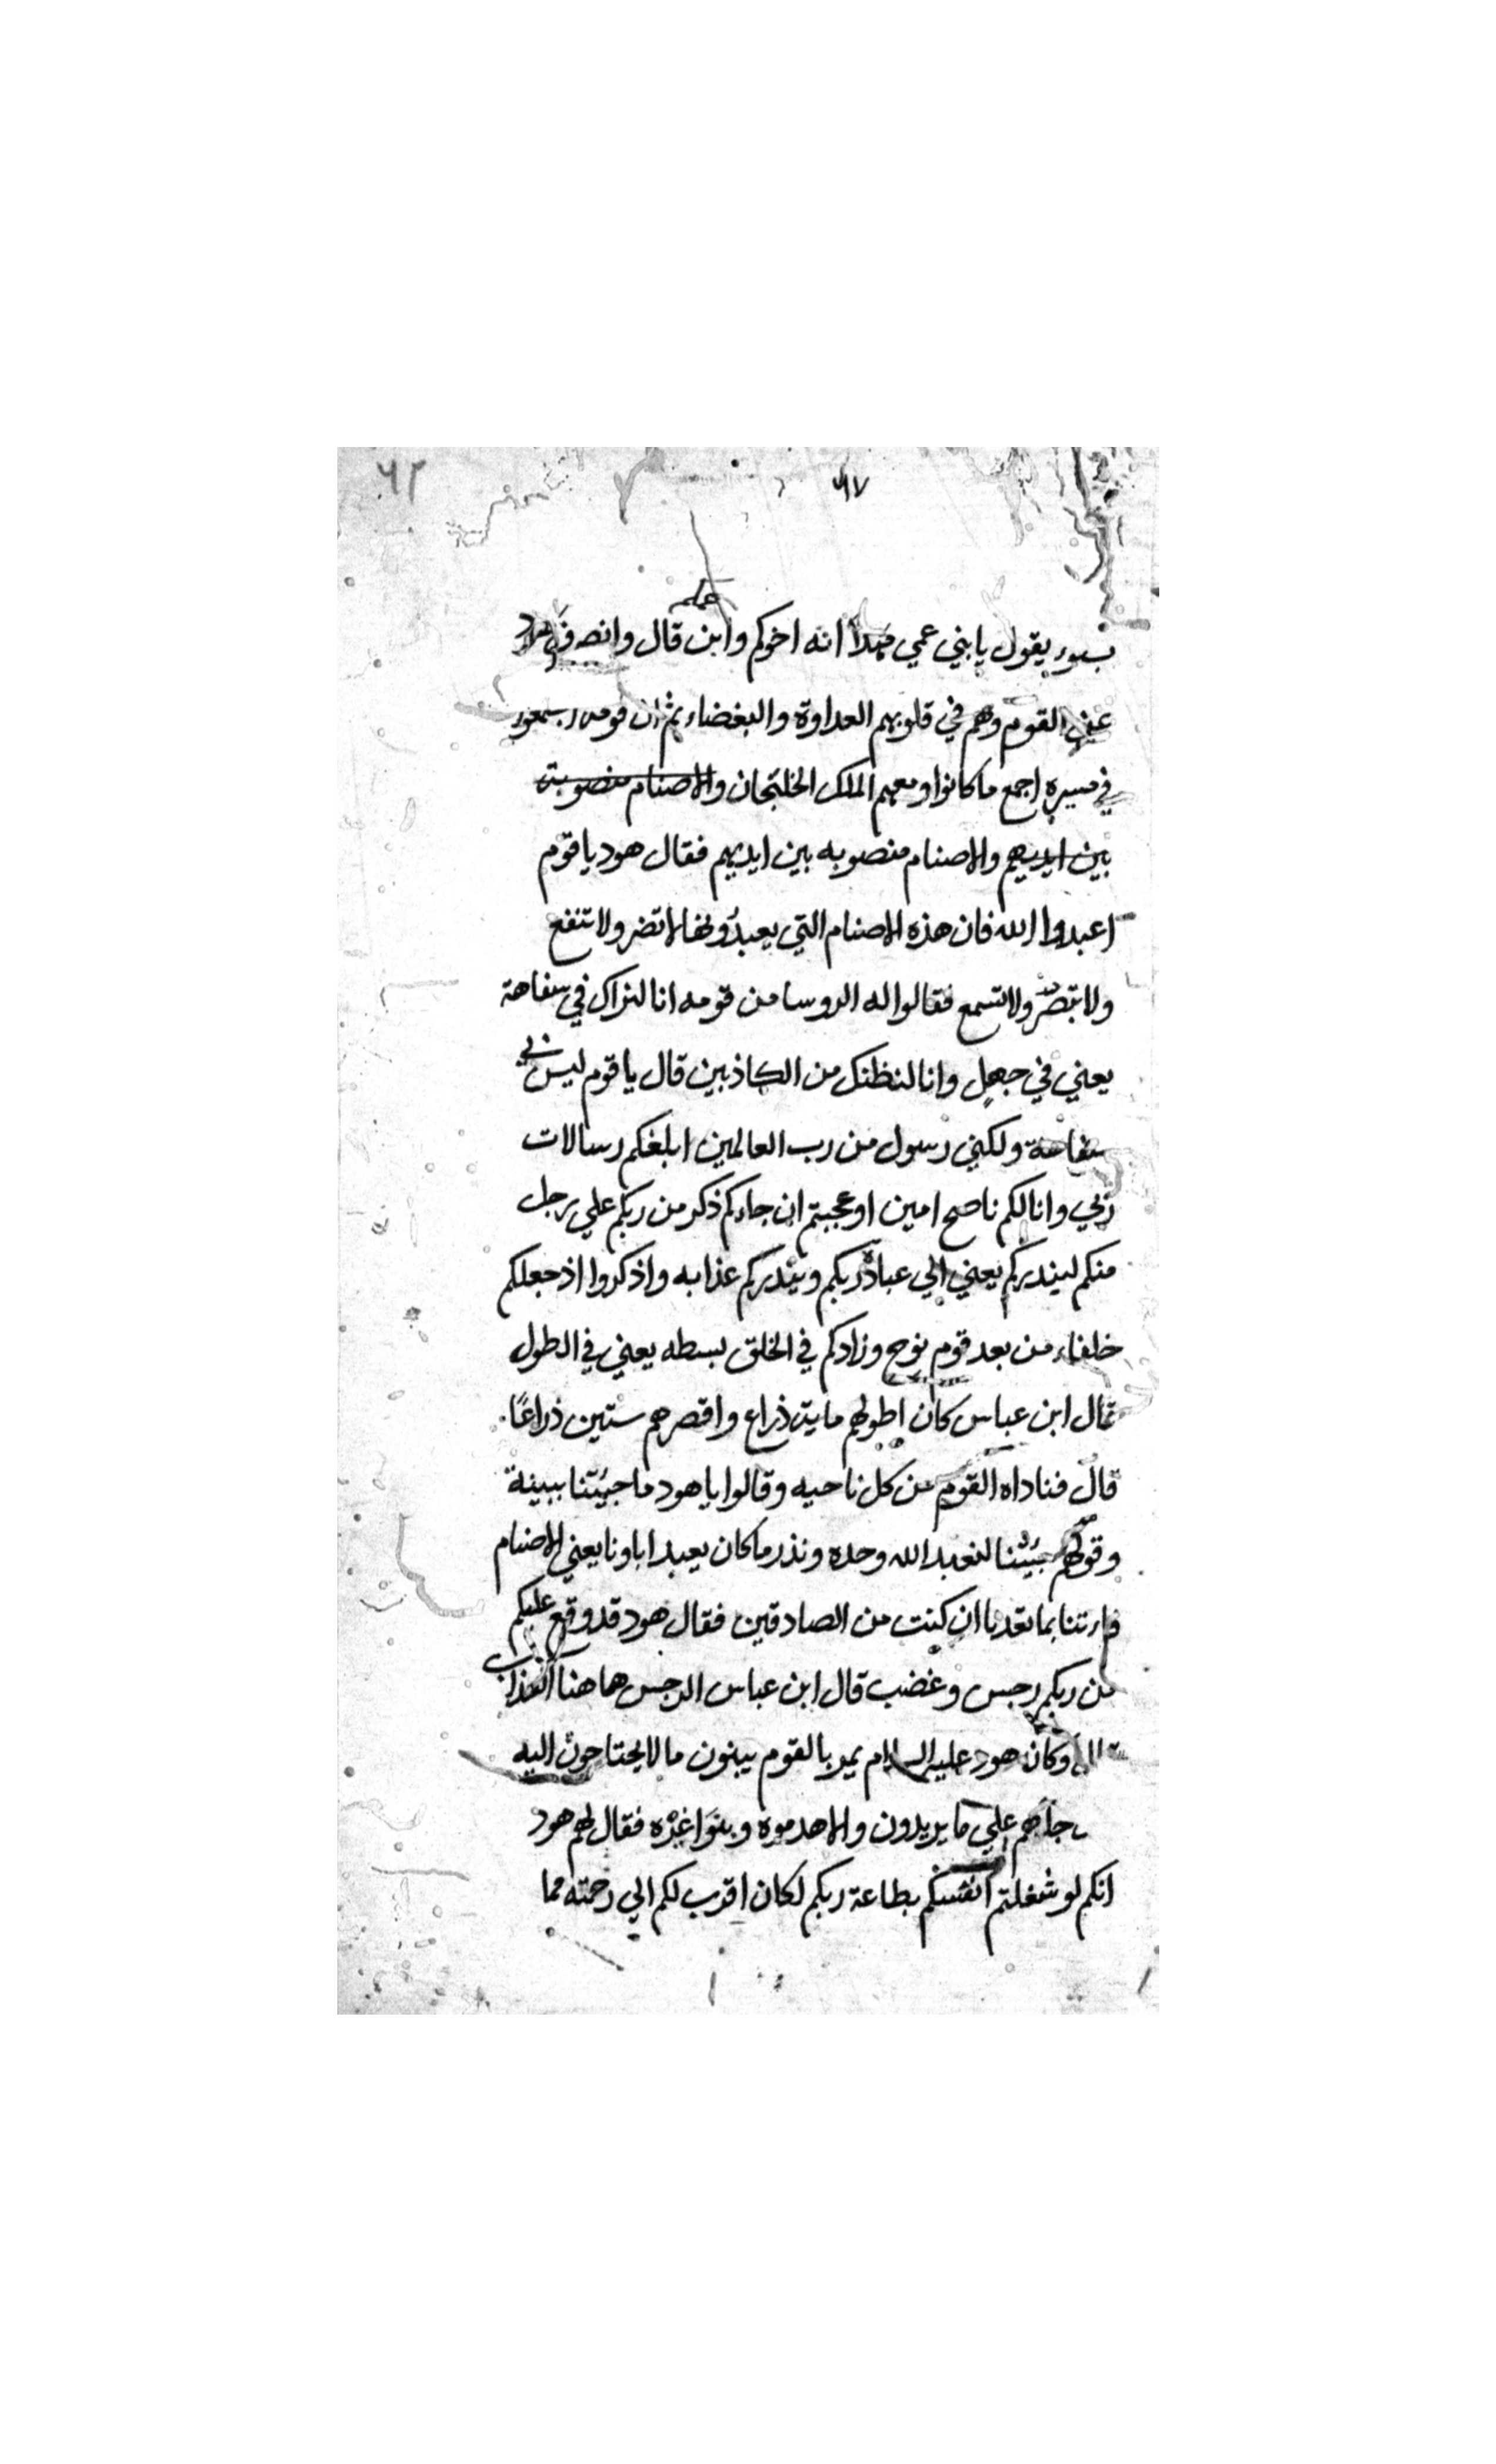 ٦٧ ٦٢
عمكم
يقول يا بني عمي مهلا انه اخوكم وابن قال وانصرف هود
عن القوم وهم في قلوبهم العداوة والبغضاء ثم ان
في مسيره اجمع ما كانوا ومعهم الملك الخلتجان والاصنام منصوبة
بين ايديهم والاصنام منصوبه بين ايديهم فقال هود يا قوم
اعبدوا الله فان هذه الاصنام التي يعبدونها لا تضر ولا تنفع
ولا تبصر ولا تسمع فقالوا له الروسا من قومه انا لنراك في سفاهة
يعني في جهل وانا لنظنك من الكاذبين قال يا قوم ليس بي
سفاهة ولكني رسول من رب العالمين ابلغكم رسالات
ربي وانا لكم ناصح امين اوعجبتم ان جاءكم ذكر من ربكم علي رجل
منكم لينذركم يعني الي عبادة ربكم وينذركم عذابه واذكروا اذ جعلكم
خلفاء من بعد قوم نوح وزادكم في الخلق بسطه يعني في الطول
قال ابن عباس كان اطولهم مايت ذراع واقصرهم ستين ذراعًا
قال فناداه القوم من كل ناحيه وقالوا يا هود ما جيئتنا ببينة
وقولهم جيئتنا لنعبد الله وحده ونذر ما كان يعبد اباونا يعني الاصنام
فاءتنا بما تعدنا ان كنت من الصادقين فقال هود قد وقع عليكم
من ربكم رجس وغضب قال ابن عباس الرجس هاهنا العذاب
قال وكان هود عليه السلام يمر بالقوم يبنون ما لا يحتاجون اليه
علي ما يريدون والا هدموه وبنوا غيره فقال لهم هود
انكم لو شغلتم انفسكم بطاعة ربكم لكان اقرب لكم الي رحمته مما